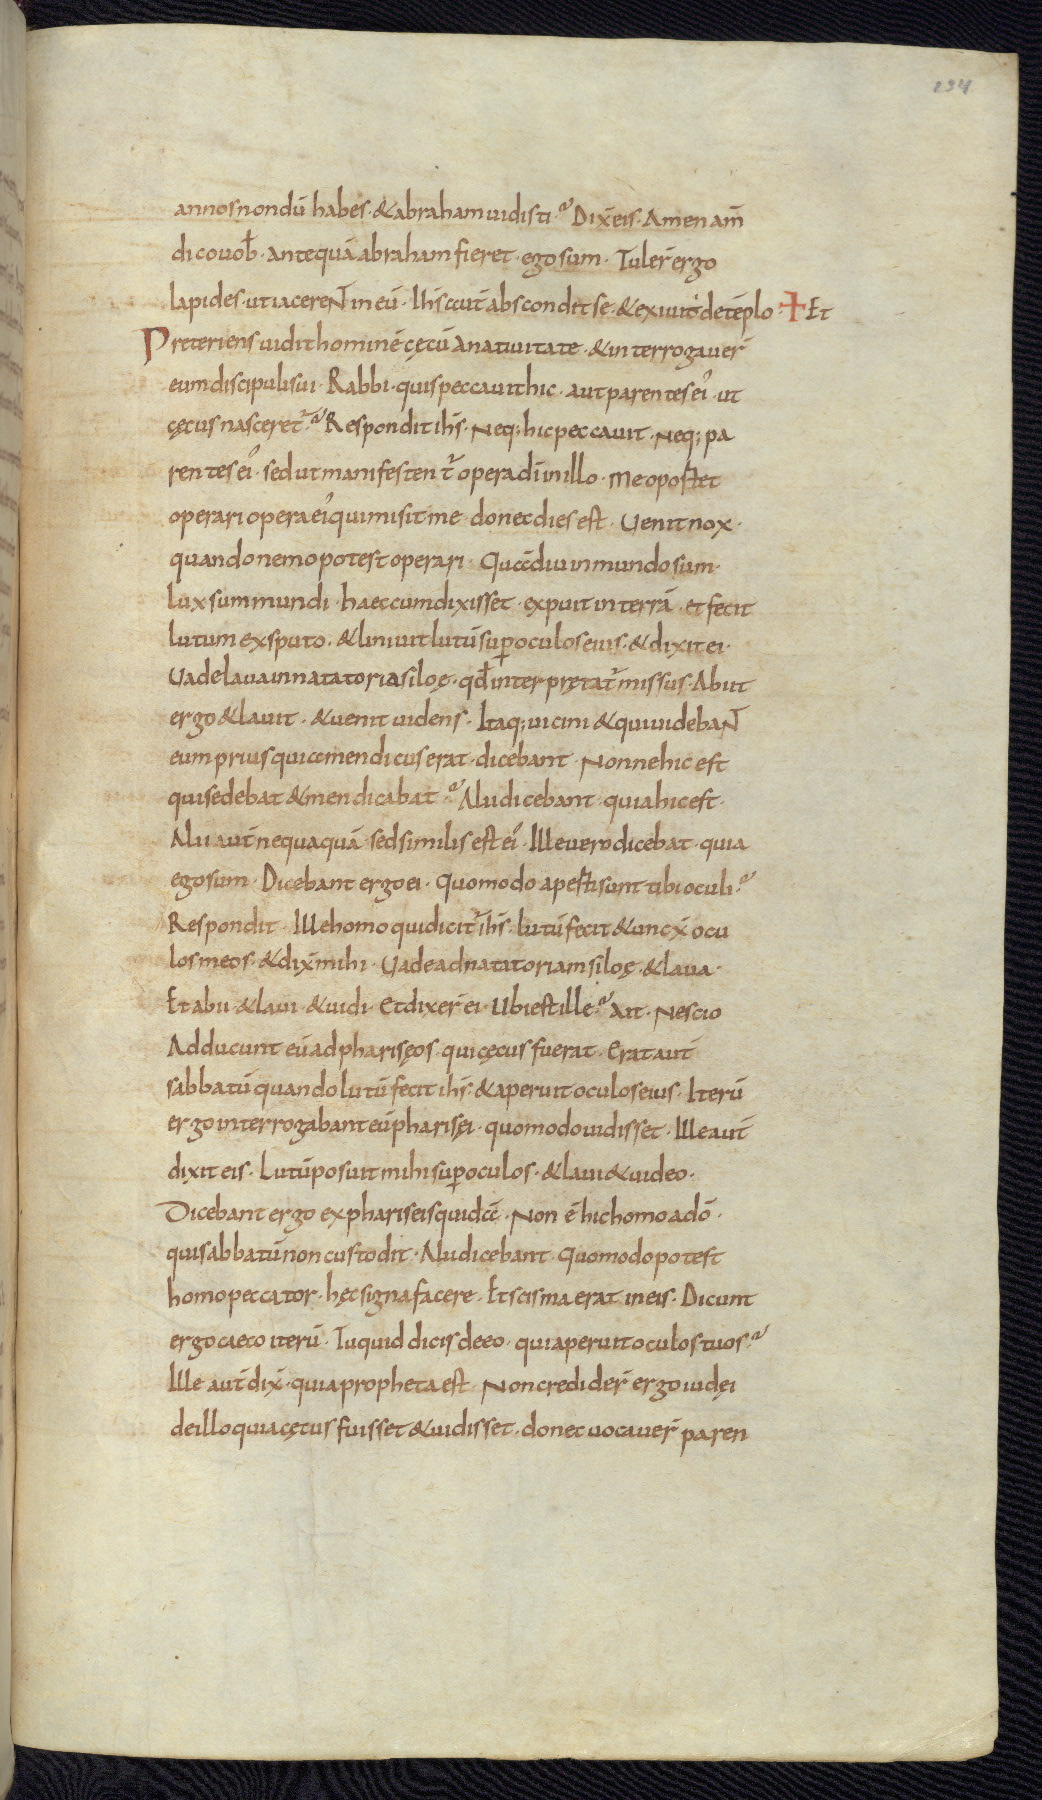 234
annos nondū habes · & abraham uidisti · Dix̄ eis · Amen am̄
dico uob̄ · Antequā abraham fieret · ego sum · Tuler̄ ergo
lapides · ut iacerent in eū · Ihs aut̄ abscondit se · & exiuit de tēplo · ✝ Et
Preteriens uidit hominē cęcū a natiuitate · & interrogauer̄
eum discipuli sui · Rabbi · quis peccauit hic · aut parentes ei᾽ · ut
cęcus nasceret᷑ · Respondit ihs · Neq; hic peccauit · Neq; pa
rentes ei᾽ · sed ut manifestent᷑ opera dī in illo · Me oportet
operari opera ei᾽ qui misit me · donec dies est · Uenit nox ·
quando nemo potest operari · Quādiu in mundo sum ·
lux sum mundi · haec cum dixisset · expuit in terrā · et fecit
lutum ex sputo · & liniuit lutū sup̄ oculos eius · & dixit ei ·
Uade laua in natatoria siloę · qđ interpretat᷑ missus · Abiit
ergo & lauit · & uenit uidens · Itaq; uicini & qui uidebant
eum prius quia mendicus erat · dicebant · Nonne hic est
qui sedebat & mendicabat · Alii dicebant · quia hic est ·
Alii aut̄ nequaquā sed similis est ei᾽ · Ille uero dicebat · quia
ego sum · Dicebant ergo ei · Quomodo aperti sunt tibi oculi ·
Respondit · Ille homo qui dicit᷑ ihs · lutū fecit & unc x̄ ocu
los meos · & dix̄ mihi · Uade ad natatoriam siloę · & laua ·
Et abii · & laui · & uidi · Et dixer̄ ei · Ubi est ille · Ait · Nescio
Adducunt eū ad pharisęos · qui cęcus fuerat · Erat aut̄
sabbatū quando lutū fecit ihs · & aperuit oculos eius · Iterū
ergo interrogabant eū pharisęi · quomodo uidisset · Ille aut̄
dixit eis · Lutū posuit mihi sup̄ oculos · & laui & uideo ·
Dicebant ergo ex phariseis quidā · Non ē hic homo a dō ·
qui sabbatū non custodit · Alii dicebant · Quomodo potest
homo peccator · hęc signa facere · Et scisma erat in eis · Dicunt
ergo caeco iterū · Tu quid dicis de eo · qui aperuit oculos tuos ·
Ille aut̄ dix̄ · quia propheta est · Non credider̄ ergo iudęi
de illo quia cęcus fuisset & uidisset · donec uocauer̄ paren